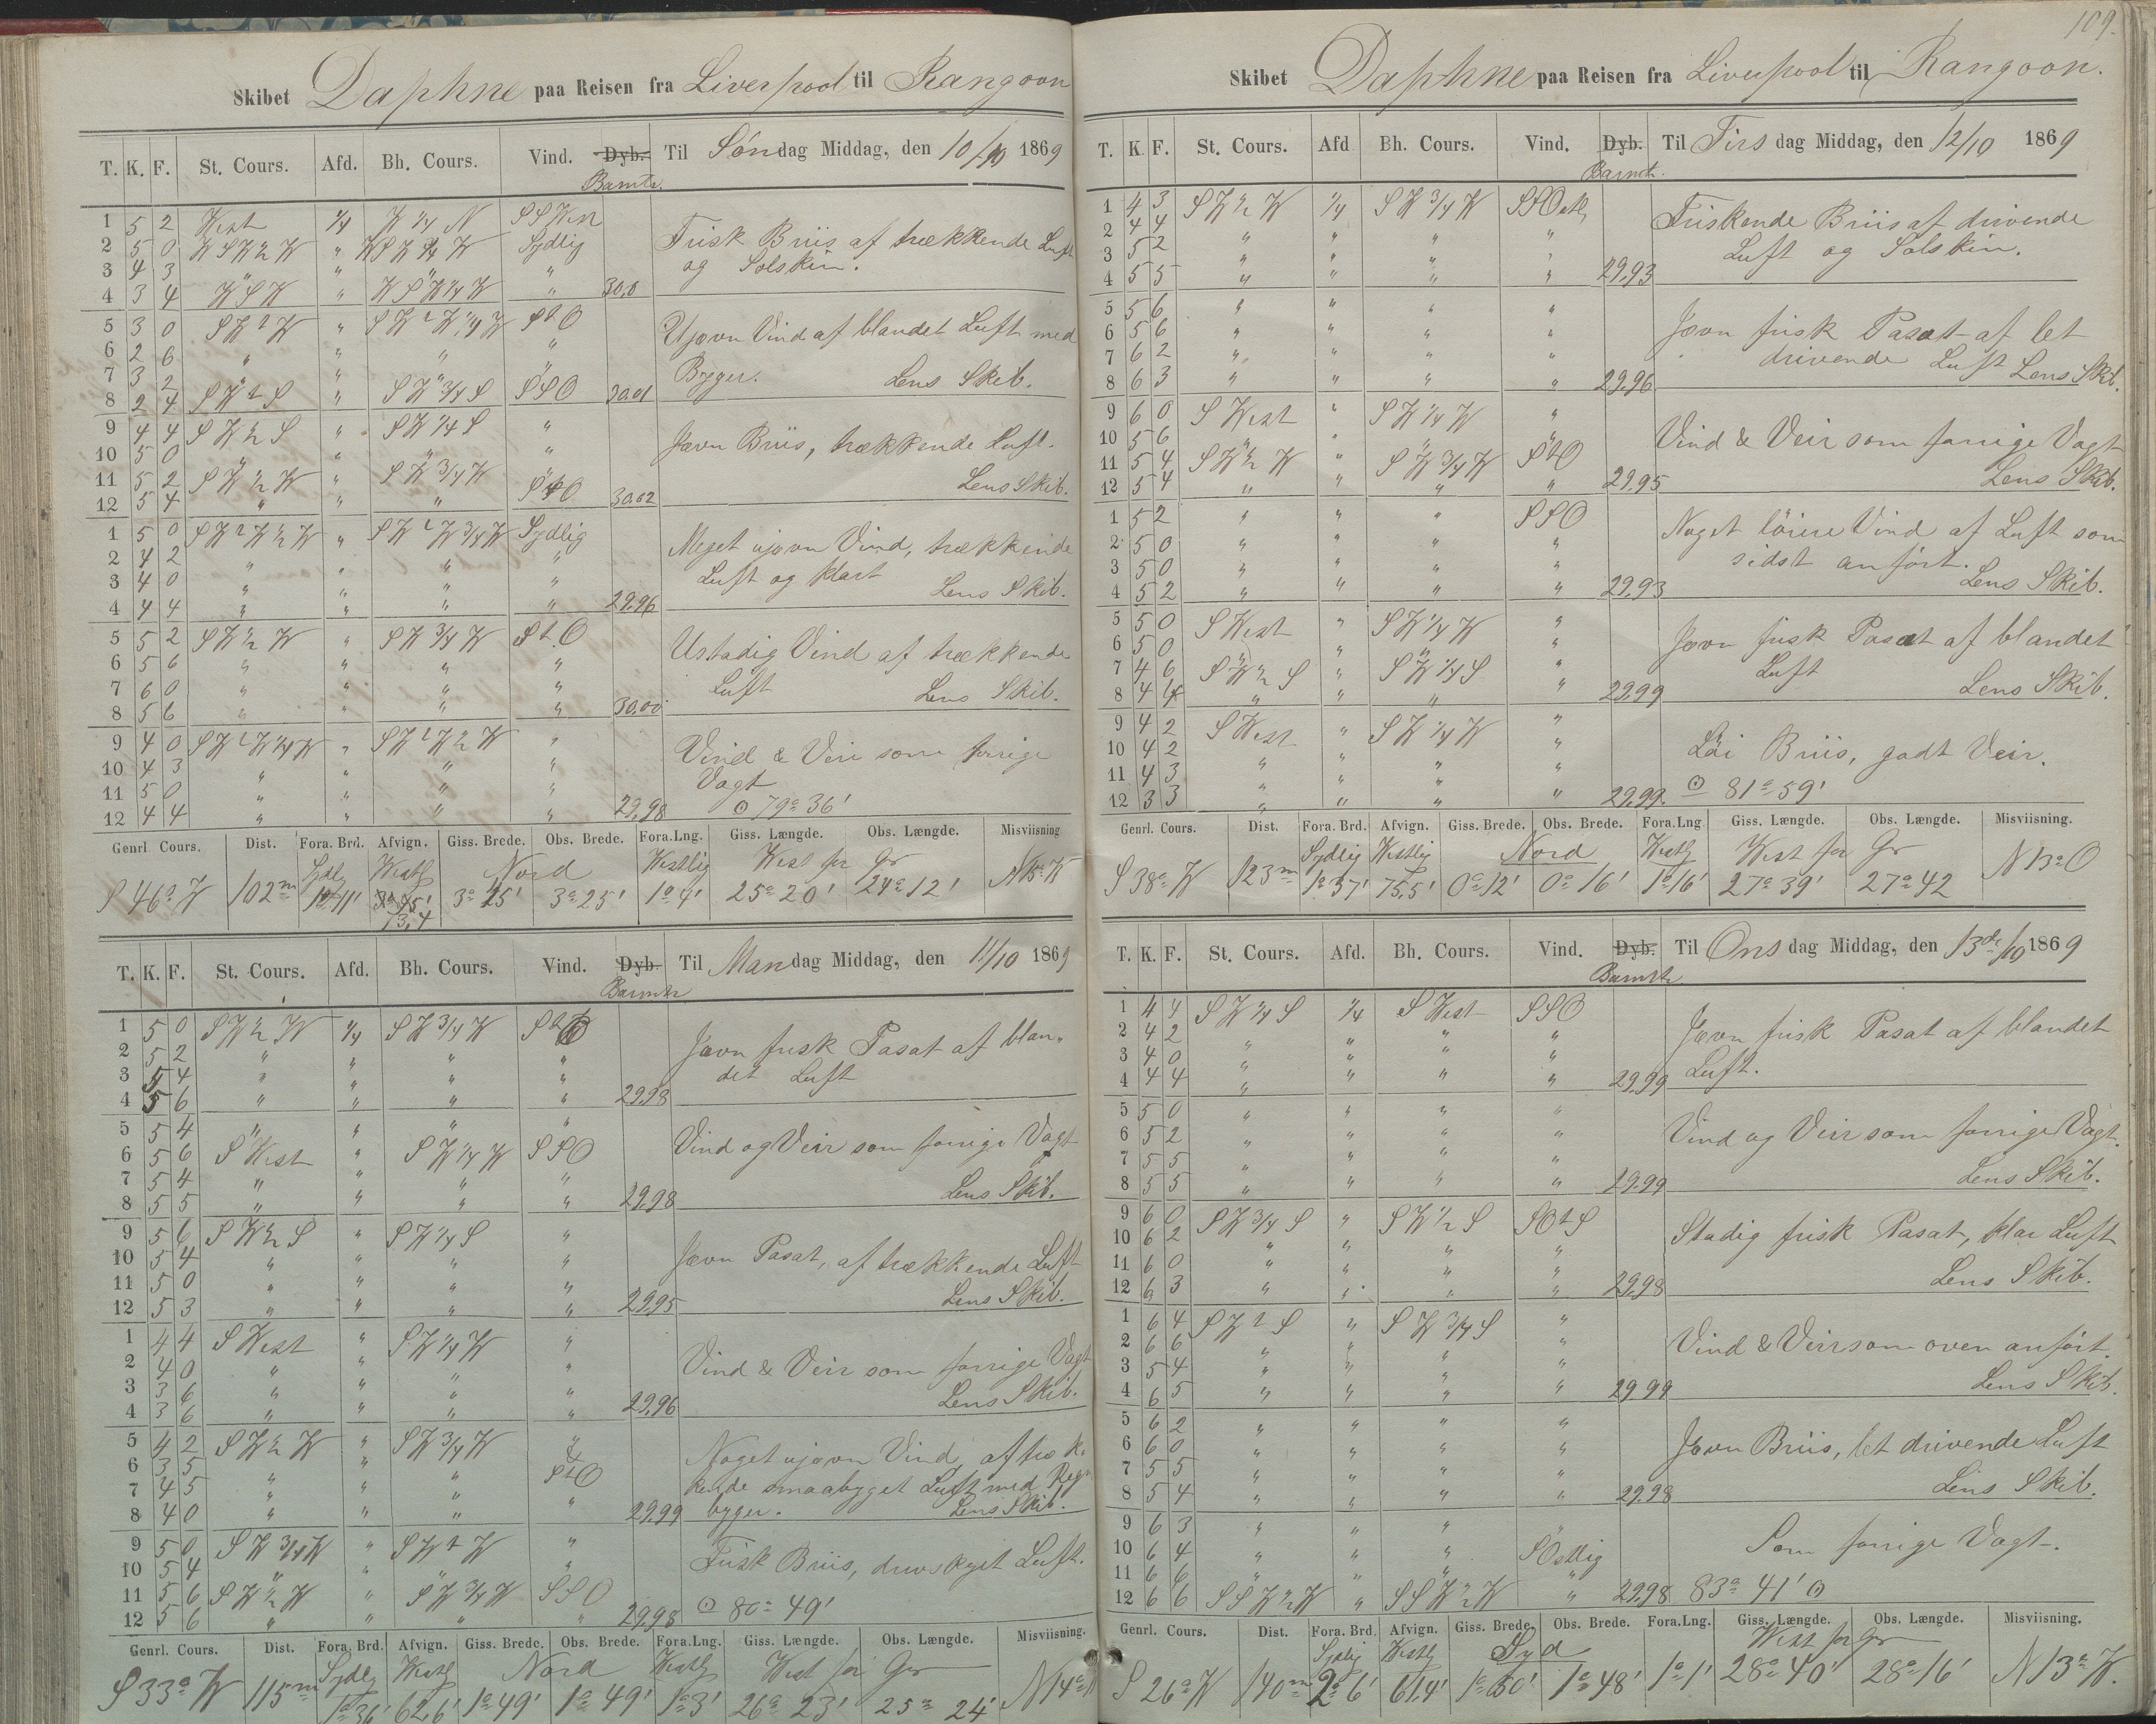 109.
Skibet Daphne paa Reisen fra Liverpool til Rangoon
T. K. F. St. Cours. Afd. Bh. Cours. Vind. Dyb. Til Søndag Middag, den 10/10 1869
Bamtr.
1 5 2 West 1/4 W 1/4 N SSWest
2 5 0 WSW 1/2 W " WSW 3/4 W Sydlig
3 4 3 " " " "
4 3 4 WSW " WSW 1/4 W " 30,0
Frisk Briis af trækkende Luft
og Solskin.
5 3 0 SWtW " SWtW 1/4 W StO
6 2 6 " " " "
7 3 2 " " " "
8 2 4 SWtS " SW 3/4 S SSO 30,01
Ujævn Vind af blandet Luft med
Byger. Lens Skib.
9 4 4 SW 1/2 S " SW 1/4 S "
10 5 0 " " " "
11 5 2 SW 1/2 W " SW 3/4 W "
12 5 4 " " " StO 30,02
Jævn Briis, trækkende Luft.
Lens Skib.
1 5 0 SWtW 1/2 W " SWtW 3/4 W Sydlig
2 4 2 " " " "
3 4 0 " " " "
4 4 4 " " " " 29,96
Meget ujævn Vind, trækkende
Luft og klart
Lens Skib.
5 5 2 SW 1/2 W " SW 3/4 W StO
6 5 6 " " " "
7 6 0 " " " "
8 5 6 " " " " 30,00
Ustadig Vind af trækkende
Luft Lens Skib.
9 4 0 SWtW 1/4 W " SWtW 1/2 W "
10 4 3 " " " "
11 5 0 " " " "
12 4 4 " " " " 29,98
Vind & Veir som forrige
Vagt
⊙ 79° 36'
Genrl. Cours. Dist. Fora. Brd. Afvign. Giss. Brede. Obs. Brede. Fora.Lng. Giss. Længde. Obs. Længde. Misviisning
Sydlg Westlg Nord Westlig West for Gr
S 46° W 102m 1° 11' 73,4 3° 25' 3° 25' 1° 4' 25° 20' 24° 12' N 15° W
T. K. F. St. Cours. Afd. Bh. Cours. Vind. Dyb. Til Mandag Middag, den 11/10 1869
Bamtr
1 5 0 SW 1/2 W 1/4 SW 3/4 W StO
2 5 2 " " " "
3 5 4 " " " "
4 5 6 " " " " 29,98
Jævn frisk Pasat af blan-
det Luft
5 5 4 " " " "
6 5 6 SWest " SW 1/4 W SSO
7 5 4 " " " "
8 5 5 " " " " 29,98
Vind og Veir som forrige Vagt
Lens Skib.
9 5 6 SW 1/2 S " SW 1/4 S "
10 5 4 " " " "
11 5 0 " " " "
12 5 3 " " " " 29,95
Jævn Pasat, af trækkende Luft
Lens Skib.
1 4 4 SWest " SW 1/4 W "
2 4 0 " " " "
3 3 6 " " " "
4 3 6 " " " " 29,96
Vind & Veir som forrige Vagt
Lens Skib.
5 4 2 SW 1/2 W " SW 3/4 W "
6 3 5 " " " &
7 4 5 " " " StO
8 4 0 " " " " 29,99
Noget ujævn Vind, af træk-
kende smaabyget Luft med Regn
byger. Lens Skib.
9 5 0 SW 3/4 W " SWtW "
10 5 4 " " " "
11 5 6 SW 1/2 W " SW 3/4 W SSO
12 5 6 " " " " 29,98
Frisk Briis, drivskyet Luft.
⊙ 80° 49'
Genrl. Cours. Dist. Fora. Brd. Afvign. Giss. Brede. Obs. Brede. Fora.Lng. Giss. Længde. Obs. Længde. Misviisning.
Sydlg Westlg Nord Westlg West for Gr
S 33° W 115m 1° 36' 62,6' 1° 49' 1° 49' 1° 3' 26° 23' 25° 24' N 14° W
Skibet Daphne paa Reisen fra Liverpool til Rangoon.
T. K. F. St. Cours. Afd Bh. Cours. Vind. Dyb. Til Tirsdag Middag, den 12/10 1869
Bamtr.
1 4 3 SW 1/2 W 1/4 SW 3/4 W SSOstlg
2 4 4 " " " "
3 5 2 " " " "
4 5 5 " " " " 29,93
Friskende Briis af drivende
Luft og Solskin.
5 5 6 " " " "
6 5 6 " " " "
7 6 2 " " " "
8 6 3 " " " " 29,96
Jævn frisk Pasat af let
drivende Luft Lens Skib.
9 6 0 SWest " SW 1/4 W "
10 5 6 " " " "
11 5 4 SW 1/2 W " SW 3/4 W StO
12 5 4 " " " " 29,95
Vind & Veir som forrige Vagt
Lens Skib.
1 5 2 " " " SSO
2 5 0 " " " "
3 5 0 " " " "
4 5 2 " " " " 29,93
Noget løiere Vind af Luft som
sidst anført.
Lens Skib.
5 5 0 SWest " SW 1/4 W "
6 5 0 " " " "
7 4 6 SW 1/2 S " SW 1/4 S "
8 4 4 " " " " 29,99
Jævn frisk Pasat af blandet
Luft
Lens Skib.
9 4 2 SWest " SW 1/4 W "
10 4 2 " " " "
11 4 3 " " " "
12 3 3 " " " " 29,99.
Løi Briis, godt Veir.
⊙ 81° 59'
Genrl. Cours. Dist. Fora. Brd. Afvign. Giss. Brede. Obs. Brede. Fora.Lng. Giss. Længde. Obs. Længde. Misviisning.
Sydlig Westlig Nord Westlg West for Gr
S 38° W 123m 1° 37' 75,5' 0° 12' 0° 16' 1° 16' 27° 39' 27° 42 N 13° O
T. K. F. St. Cours. Afd. Bh. Cours. Vind. Dyb. Til Onsdag Middag, den 13de/10 1869
Bamtr
1 4 4 SW 1/4 S 1/4 SWest SSO
2 4 2 " " " "
3 4 0 " " " "
4 4 4 " " " " 29,99
Jævn frisk Pasat af blandet
Luft.
5 5 0 " " " "
6 5 2 " " " "
7 5 5 " " " "
8 5 5 " " " " 29,99
Vind og Veir som forrige Vagt.
Lens Skib.
9 6 0 SW 3/4 S " SW 1/2 S SOtS
10 6 2 " " " "
11 6 0 " " " "
12 6 3 " " " " 29,98
Stadig frisk Pasat, klar Luft
Lens Skib.
1 6 4 SWtS " SW 3/4 S "
2 6 6 " " " "
3 5 4 " " " "
4 6 5 " " " " 29 99
Vind & Veir som oven anført.
Lens Skib.
5 6 2 " " " "
6 6 0 " " " "
7 5 5 " " " "
8 5 4 " " " " 29,98
Jævn Briis, let drivende Luft
Lens Skib.
9 6 3 " " " "
10 6 4 " " " SOstlig
11 6 6 " " " "
12 6 6 SSW 1/2 W " SSW 1/2 W " 29,98
Som forrige Vagt.
83° 41' ⊙
Genrl. Cours. Dist. Fora. Brd. Afvign. Giss. Brede. Obs. Brede. Fora.Lng. Giss. Længde. Obs. Længde. Misviisning.
Sydlig Westlg Syd West for Gr
S 26° W 140m 2° 6' 61,4' 1° 50' 1° 48' 1° 1' 28° 40' 28° 16' N 13° W.